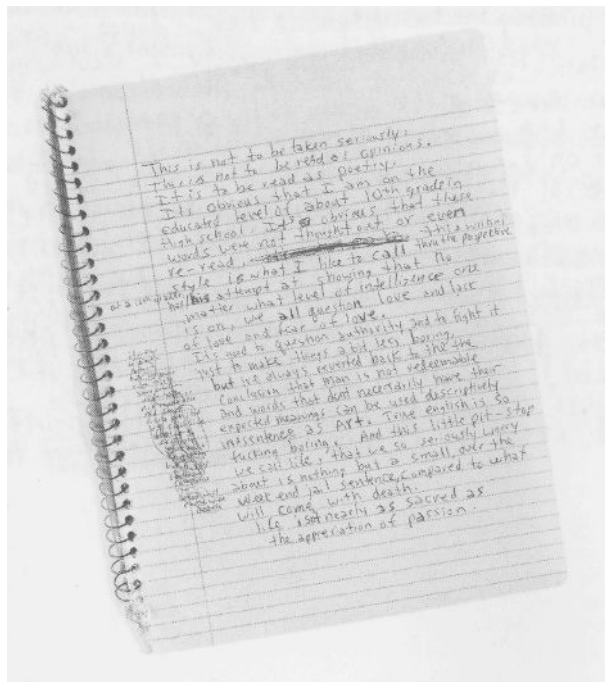 This is not to be taken seriously.
This is not to be read as opinions.
It is to be read as poetry.
It's obvious that I am on the
educated level of about 10th grade in
High school. It's obvious that these
words were not thought out or even
re-read, This writing
style is what I like to call thru the perspective
attempt at showing that No
matter what level of intelligence one
is on, we all question love and lack
of love and fear of love.
It's good to question authority and to fight it
just to make things a bit less boring,
but ive always reverted back to the
Conclusion that man is not redeemable
and words that dont necesarily have their
expected meanings can be used descriptively
in a sentence as ART. True english is so
fucking boring. And this little pit-stop
we call life, that we so seriously worry
about is nothing but a small, over the
week end jail sentence, compared to what
will come with death.
life isnt nearly as sacred as
the appreciation of passion.